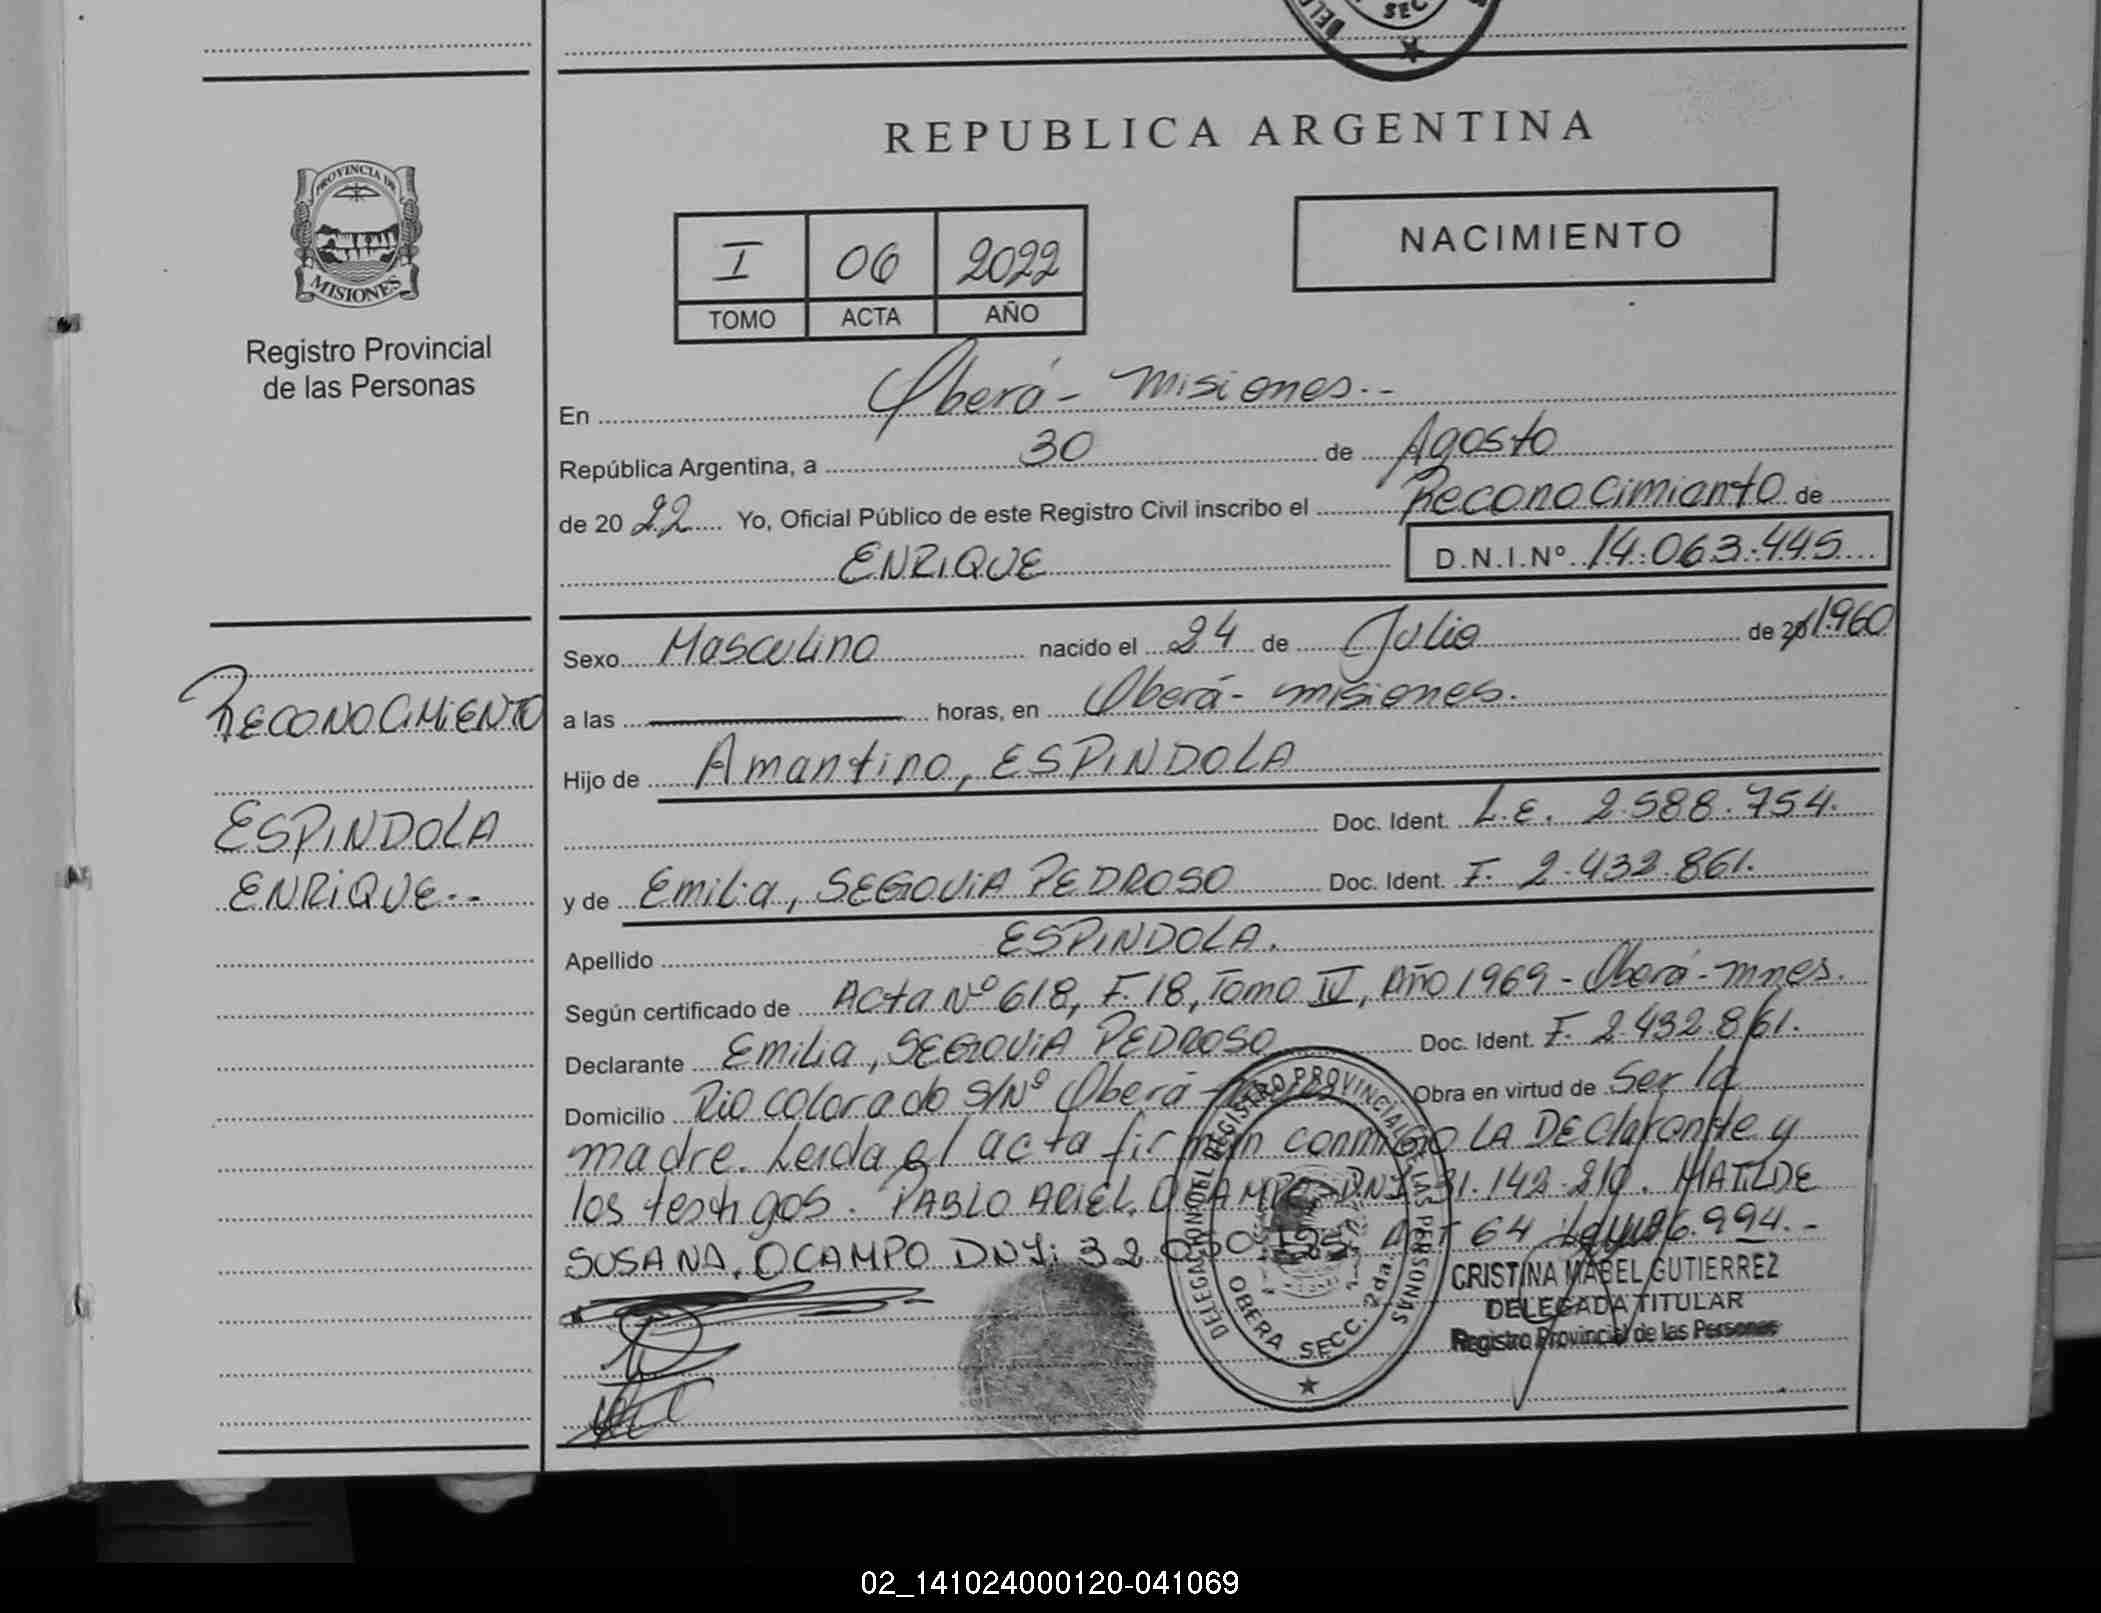 SEC
REPUBLICA ARGENTINA
PROVINCIA DE
MISIONES
Registro Provincial
de las Personas
I 06 2022
TOMO ACTA AÑO
NACIMIENTO
En Oberá - Misiones.-
República Argentina, a 30 de Agosto
de 20 22 Yo, Oficial Público de este Registro Civil inscribo el Reconocimiento de
ENRIQUE D.N.I.Nº 14.063.445
Sexo Masculino nacido el 24 de Julio de 1960
a las horas, en Oberá - misiones.
Hijo de Amantino, ESPINDOLA
Doc. Ident. L.E. 2.588.754.
y de Emilia, SEGOVIA PEDROSO Doc. Ident. F. 2.432.861.
Apellido ESPINDOLA.
Según certificado de Acta Nº 618, F. 18, Tomo IV, Año 1969 - Oberá - mnes.
Declarante Emilia, SEGOVIA PEDROSO Doc. Ident. F. 2.432.861.
Domicilio Rio colorado S/Nº Oberá - Obra en virtud de Ser la
madre. Leida el acta firman conmigo LA DEClarante y
los testigos. PABLO ARIEL, OCAMPO DNI 31.142.210. MATILDE
SUSANA, OCAMPO DNI: 32 ART 64 Ley 26.994.-
RECONOCIMIENTO
ESPINDOLA
ENRIQUE.--
DELEGACION DEL REGISTRO PROVINCIAL DE LAS PERSONAS
OBERA SECC. 2da.
CRISTINA MABEL GUTIERREZ
DELEGADA TITULAR
Registro Provincial de las Personas
02_141024000120-041069